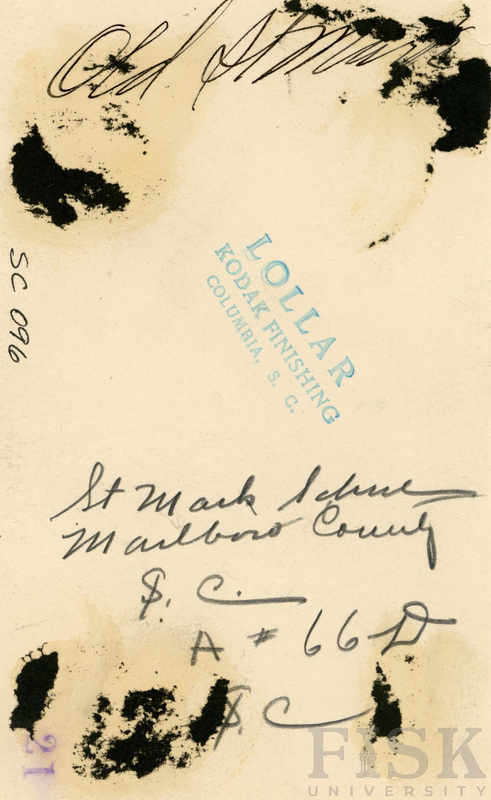 Old St Mark
SC 096
LOLLAR
KODAK FINISHING
COLUMBIA, S. C.
St Mark School
Marlboro County
S. C.
A # 66 D
S. C
21
FISK
UNIVERSITY